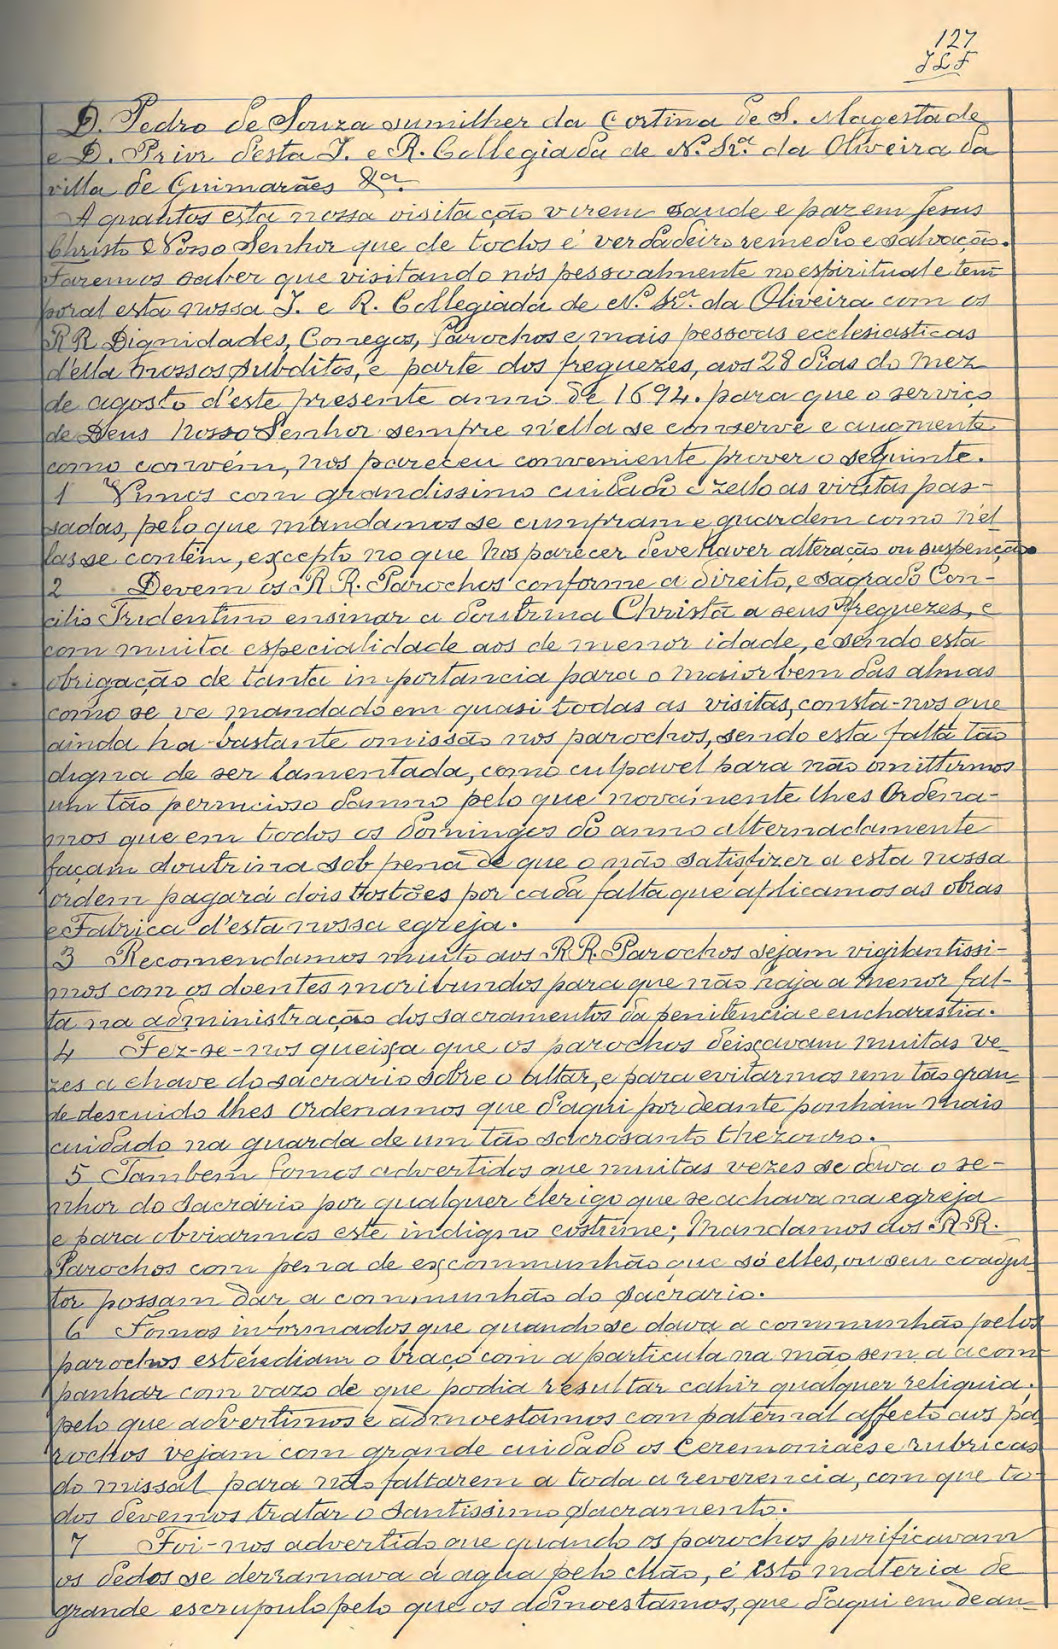 127
JLF
D. Pedro de Souza sumilher da Cortina de S. Magestade
e D. Prior d'esta I. e R. Collegiada de N.ª Sr.ª da Oliveira da
villa de Guimarães &ª.
A quantos esta nossa visitação virem saude e paz em Jesus
Christo Nosso Senhor que de todos é verdadeiro remedio e salvação.
Faremos saber que visitando nós pessoalmente no espiritual e tem-
poral esta nossa I. e R. Collegiada de N.ª Sr.ª da Oliveira com os
RR Dignidades, Conegos, Parochos e mais pessoas ecclesiasticas
d'ella nossos subditos, e parte dos freguezes, aos 28 dias do mez
de agosto d'este presente anno de 1694. para que o serviço
de Deus Nosso Senhor sempre n'ella se conserve e augmente
como convém, nos pareceu conveniente prover o seguinte.
1 Vimos com grandissimo cuidado e zello as visitas pas-
sadas, pelo que mandamos se cumpram e guardem como n'el-
las se contêm, excepto no que nos parecer deve haver alteração ou suspenção
2 Devem os RR. Parochos conforme a direito, e sagrado Con-
cilio Tridentino ensinar a doutrina Christã a seus freguezes, e
com muita especialidade aos de menor idade, e sendo esta
obrigação de tanta importancia para o maior bem das almas
como se ve mandado em quasi todas as visitas, consta-nos que
ainda ha bastante omissão nos parochos, sendo esta falta tão
digna de ser lamentada, como culpavel para não omittirmos
um tão pernicioso damno pelo que novamente lhes Ordena-
mos que em todos os domingos do anno alternadamente
façam doutrina sob pena de que o não satisfizer a esta nossa
ordem pagará dois tostões por cada falta que aplicamos as obras
e Fabrica d'esta nossa egreja.
3 Recomendamos muito aos RR. Parochos sejam vigilantissi-
mos com os doentes moribundos para que não haja a menor fal-
ta na administração dos sacramentos da penitencia e eucharistia.
4 Fez-se-nos queixa que os parochos deixavam muitas ve-
zes a chave do sacrario sobre o altar, e para evitarmos um tão gran-
de descuido lhes Ordenamos que d'aqui por deante ponham mais
cuidado na guarda de um tão sacrosanto thezouro.
5 Tambem fomos advertidos que muitas vezes se dava o se-
nhor do sacrário por qualquer clerigo que se achava na egreja
e para obviarmos este indigno costume; Mandamos aos RR.
Parochos com pena de excommunhão que só elles, ou seu coadju-
tor possam dar a communhão do sacrario.
6 Fomos informados que quando se dava a communhão pelos
parochos estendiam o braço com a particula na mão sem a acom-
panhar com vazo de que podia resultar cahir qualquer reliquia;
pelo que advertimos e admoestamos com paternal affecto aos pa-
rochos vejam com grande cuidado os Ceremoniaes e rubricas
do missal para não faltarem a toda a reverencia, com que to-
dos devemos tratar o Santissimo Sacramento.
7 Foi-nos advertido que quando os parochos purificavam
os dedos se derramava a agua pelo chão, é isto materia de
grande escrupulo pelo que os admoestamos, que d'aqui em dean-